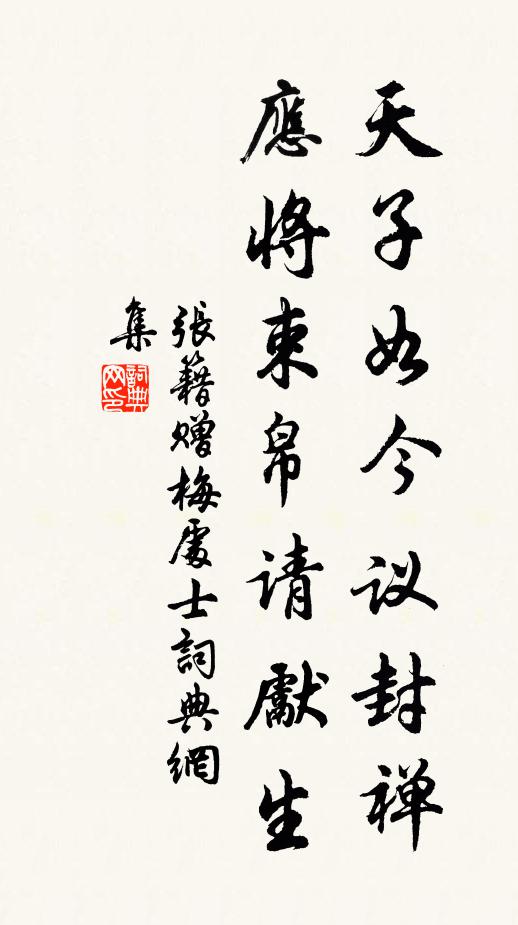 天子如今议封禅
應將束帛请獻生
張籍赠梅處士詞典網
集
詞典网印